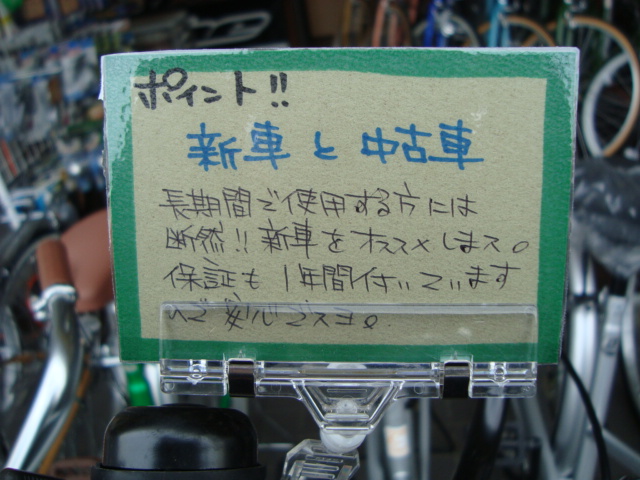 ポイント!!
新車と中古車
長期間で使用する方には
断然!!新車をオススメしまス。
保証も1年間付いています
ので安心でスヨ。